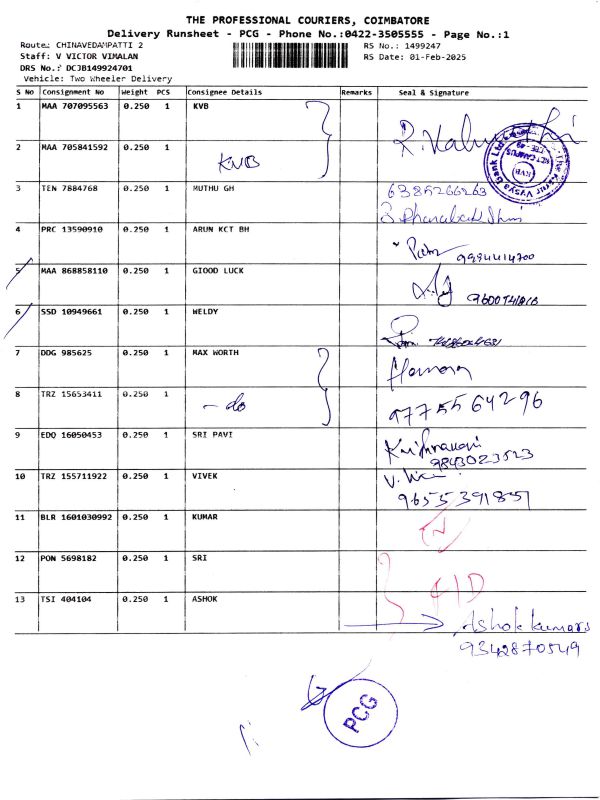 THE PROFESSIONAL COURIERS, COIMBATORE
Delivery Runsheet - PCG - Phone No.:0422-3505555 - Page No.:1
Route: CHINAVEDAMPATTI 2 RS No.: 1499247
Staff: V VICTOR VIMALAN RS Date: 01-Feb-2025
DRS No.: DCJB149924701
Vehicle: Two Wheeler Delivery
S No Consignment No Weight PCS Consignee Details Remarks Seal & Signature
1 MAA 707095563 0.250 1 KVB
2 MAA 705841592 0.250 1 KVB
3 TEN 7884768 0.250 1 MUTHU GH 6385266263
4 PRC 13590910 0.250 1 ARUN KCT BH 9994414700
5 MAA 868858110 0.250 1 GIOOD LUCK
6 SSD 10949661 0.250 1 WELDY
7 DDG 985625 0.250 1 MAX WORTH
8 TRZ 15653411 0.250 1 - do 9775564296
9 EDQ 16050453 0.250 1 SRI PAVI 9843023523
10 TRZ 155711922 0.250 1 VIVEK 9655391851
11 BLR 1601030992 0.250 1 KUMAR
12 PON 5698182 0.250 1 SRI
13 TSI 404104 0.250 1 ASHOK Ashok kumar
9342870549
The Karur Vysya Bank Ltd
KVB
KCT CAMPUS
PCG